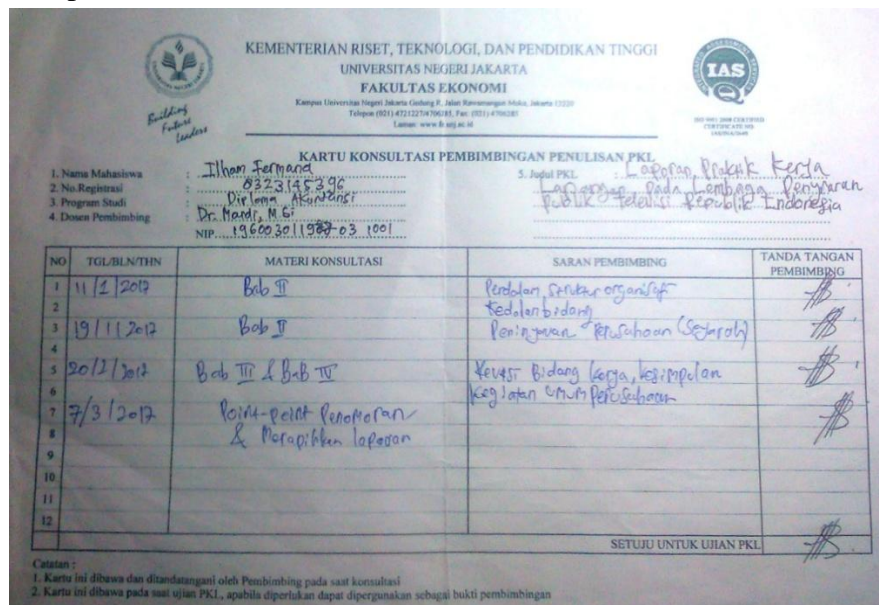 KEMENTERIAN RISET, TEKNOLOGI, DAN PENDIDIKAN TINGGI
UNIVERSITAS NEGERI JAKARTA
FAKULTAS EKONOMI
Kampus Universitas Negeri Jakarta Gedung R, Jalan Rawamangun Muka, Jakarta 13220
Telepon (021) 4721227/4706285, Fax: (021) 4706285
Laman: www.fe.unj.ac.id
Building
Future
Leaders
IAS
ISO 9001:2008 CERTIFIED
CERTIFICATE NO
KARTU KONSULTASI PEMBIMBINGAN PENULISAN PKL
1. Nama Mahasiswa : Ilham Fermand
2. No.Registrasi : 8323145396
3. Program Studi : Diploma Akuntansi
4. Dosen Pembimbing : Dr. Mardi, M.Si
NIP. 19600301198703 1001
5. Judul PKL : Laporan Praktik Kerja
Lapangan Pada Lembaga Penyiaran
Publik Televisi Republik Indonesia
NO TGL/BLN/THN MATERI KONSULTASI SARAN PEMBIMBING TANDA TANGAN PEMBIMBING
1 11/1/2017 Bab II struktur organisasi
2
3 19/1/2017 Bab II Perusahaan (Sejarah)
4
5 20/2/2017 Bab III & Bab IV Revisi Bidang kerja, kesimpulan
6 kegiatan Umum Perusahaan
7 7/3/2017 Point-point Penomoran
8 & Merapihkan laporan
9
10
11
12
SETUJU UNTUK UJIAN PKL
Catatan :
1. Kartu ini dibawa dan ditandatangani oleh Pembimbing pada saat konsultasi
2. Kartu ini dibawa pada saat ujian PKL, apabila diperlukan dapat dipergunakan sebagai bukti pembimbingan